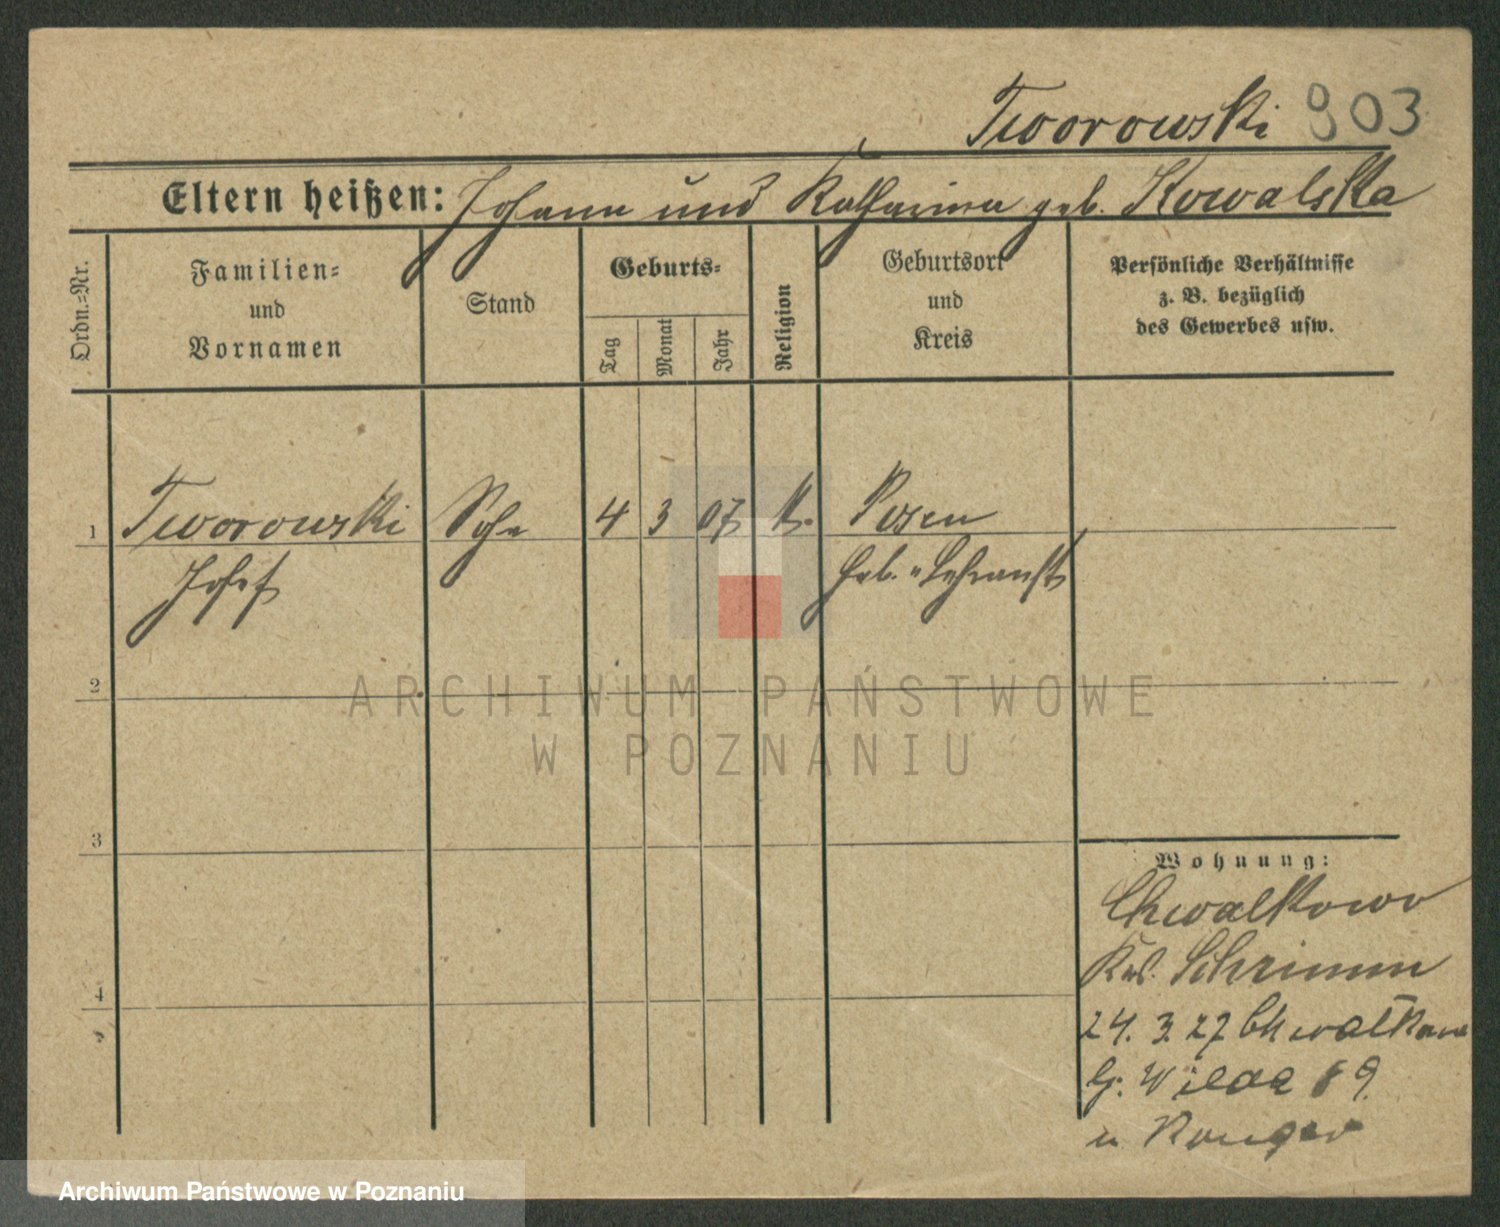 Tworowski 903
Eltern heißen: Johann und Katharina geb. Kowalska
Ordn.=Nr.
Familien=
und
Vornamen
Stand
Geburts=
Tag
Monat
Jahr
Religion
Geburtsort
und
Kreis
Persönliche Verhältnisse
z. B. bezüglich
des Gewerbes usw.
1 Tworowski Sohn 4 3 07 k. Posen
Josef Heb. "Lehranst
2
3
4
Wohnung:
Chwalkowo
Krs. Schrimm
24. 3. 27 Chwałkowo
G. Wilda 89
u
ARCHIWUM PAŃSTWOWE
W POZNANIU
Archiwum Państwowe w Poznaniu